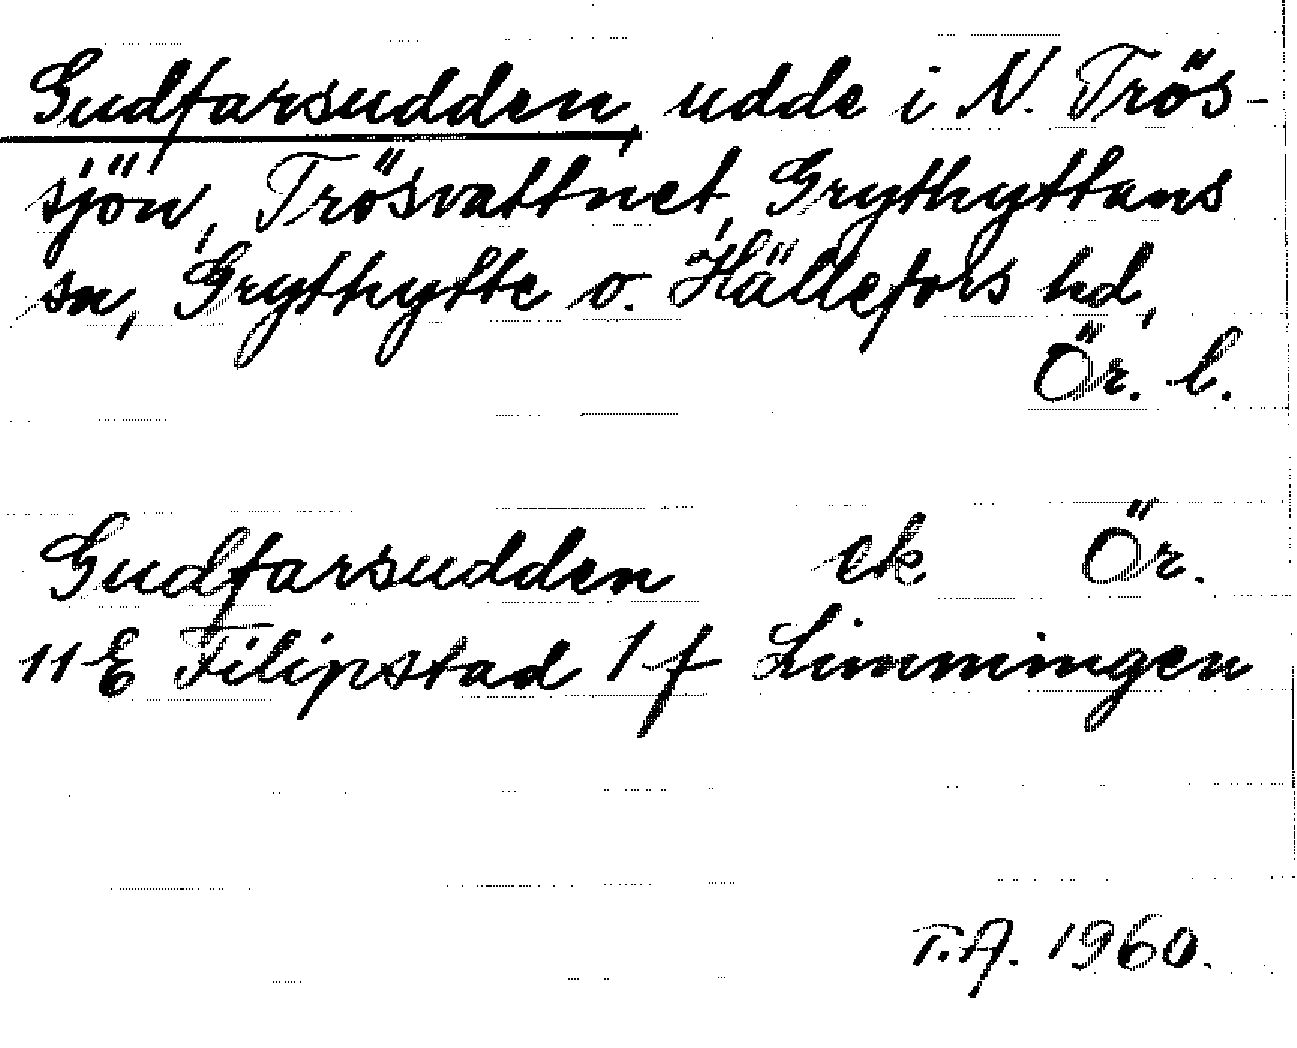 Gudfarsudden, udde i N. Trös-
sjön, Trösvattnet, Grythyttans
sn, Grythytte o. Hällefors hd,
Ör. l.
Gudfarsudden ek Ör.
11 E Filipstad 1 f Limmingen
T.A. 1960.